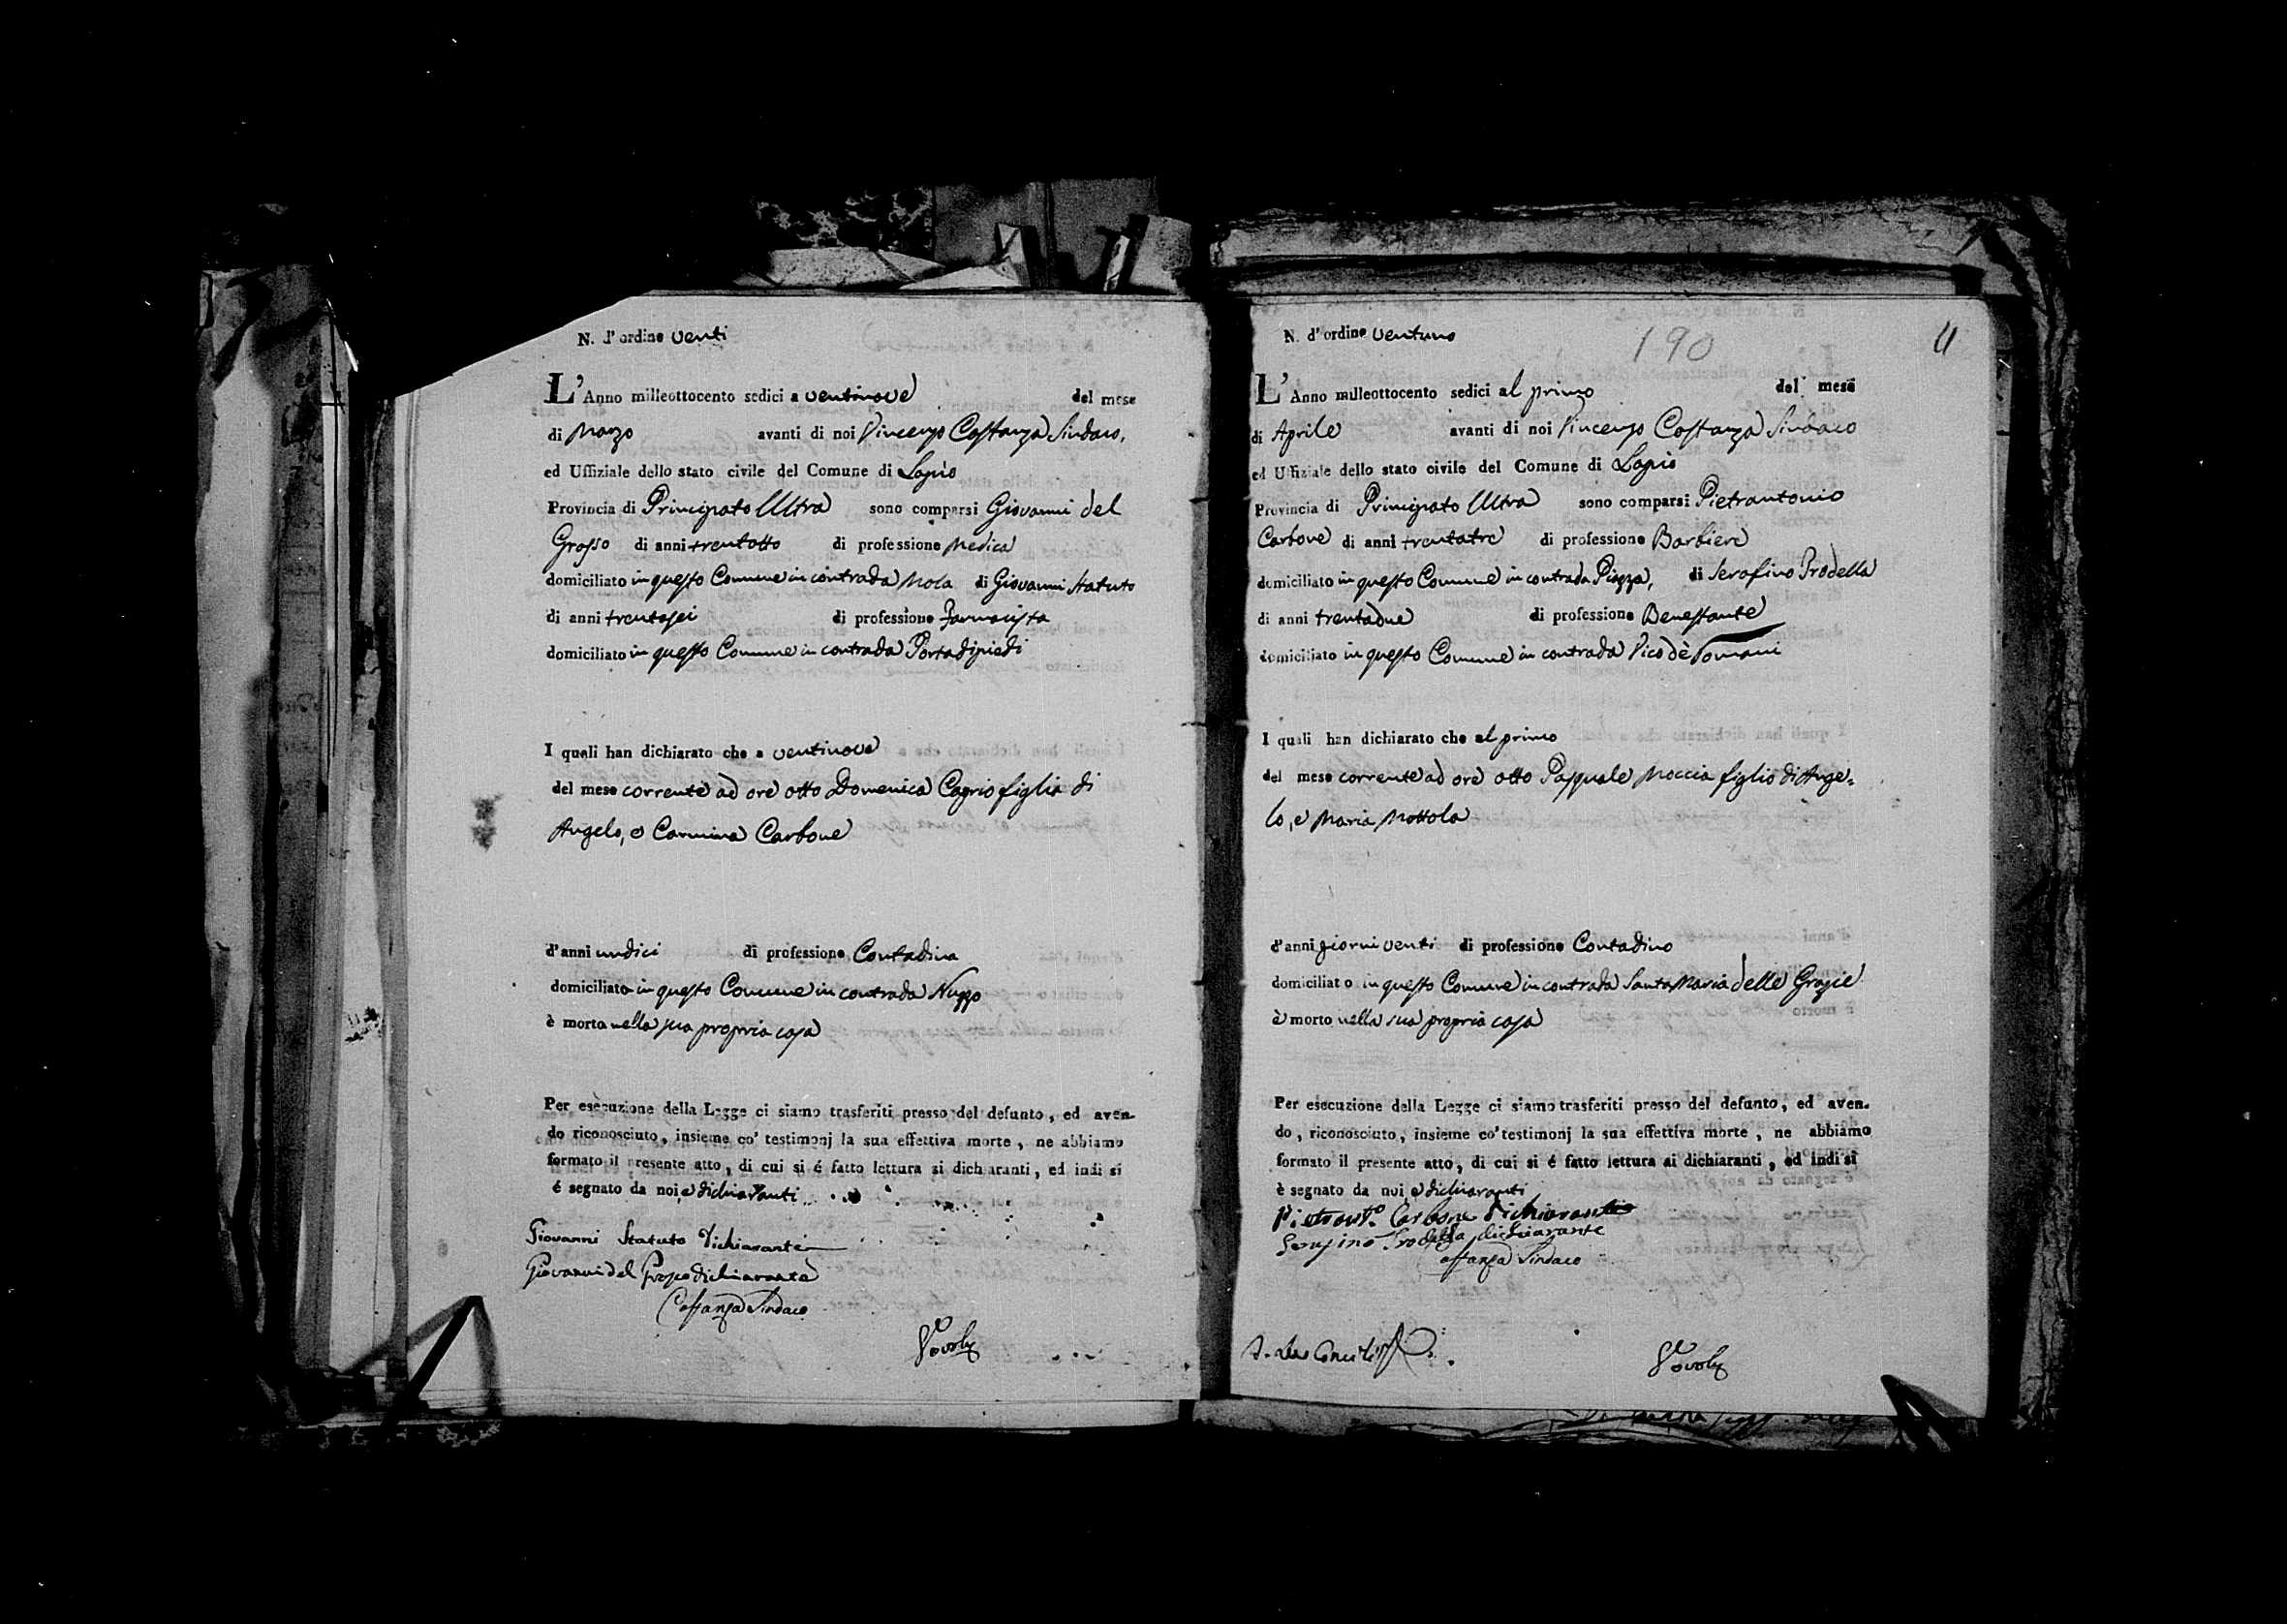 N. d'ordine venti
L'Anno milleottocento sedici a ventinove del mese
di Marzo avanti di noi Vincenzo Costanza Sindaco,
ed Uffiziale dello stato civile del Comune di Lapio
Provincia di Principato Ultra sono comparsi Giovanni del
Grosso di anni trentotto di professione Medico
domiciliato in questo Comune in contrada Mola di Giovanni Statuto
di anni trentasei di professione Farmacista
domiciliato in questo Comune in contrada Portadipiedi
I quali han dichiarato che a ventinove
del mese corrente ad ore otto Domenica Caprio figlia di
Angelo, e Carmina Carbone
d'anni undici di professione Contadina
domiciliato in questo Comune in contrada Nuzzo
è morta nella sua propria casa
Per esecuzione della Legge ci siamo trasferiti presso del defunto, ed aven-
do riconosciuto, insieme co' testimonj la sua effettiva morte, ne abbiamo
formato il presente atto, di cui si é fatto lettura ai dichiaranti, ed indi si
é segnato da noi, e dichiaranti
Giovanni Statuto Dichiarante
Giovanni del Grosso dichiarante
Costanza Sindaco
N. d'ordine ventuno
190
L'Anno milleottocento sedici al primo del mese
di Aprile avanti di noi Vincenzo Costanza Sindaco
ed Uffiziale dello stato civile del Comune di Lapio
Provincia di Principato Ultra sono comparsi Pietrantonio
Carbone di anni trentatre di professione Barbiere
domiciliato in questo Comune in contrada Piazza, di Serafino Prodella
di anni trentadue di professione Benestante
domiciliato in questo Comune in contrada Vico dè Romani
I quali han dichiarato che al primo
del mese corrente ad ore otto Pasquale Moccia figlio di Ange-
lo, e Maria Mottola
d'anni giorni venti di professione Contadino
domiciliato in questo Comune in contrada Santa Maria delle Grazie
è morto nella sua propria casa
Per esecuzione della Legge ci siamo trasferiti presso del defunto, ed aven-
do, riconosciuto, insieme co' testimonj la sua effettiva morte, ne abbiamo
formato il presente atto, di cui si é fatto lettura ai dichiaranti, ed indi si
è segnato da noi, e dichiaranti
Pietrant.o Carbone Dichiarante
Serafino Prodella dichiarante
Costanza Sindaco